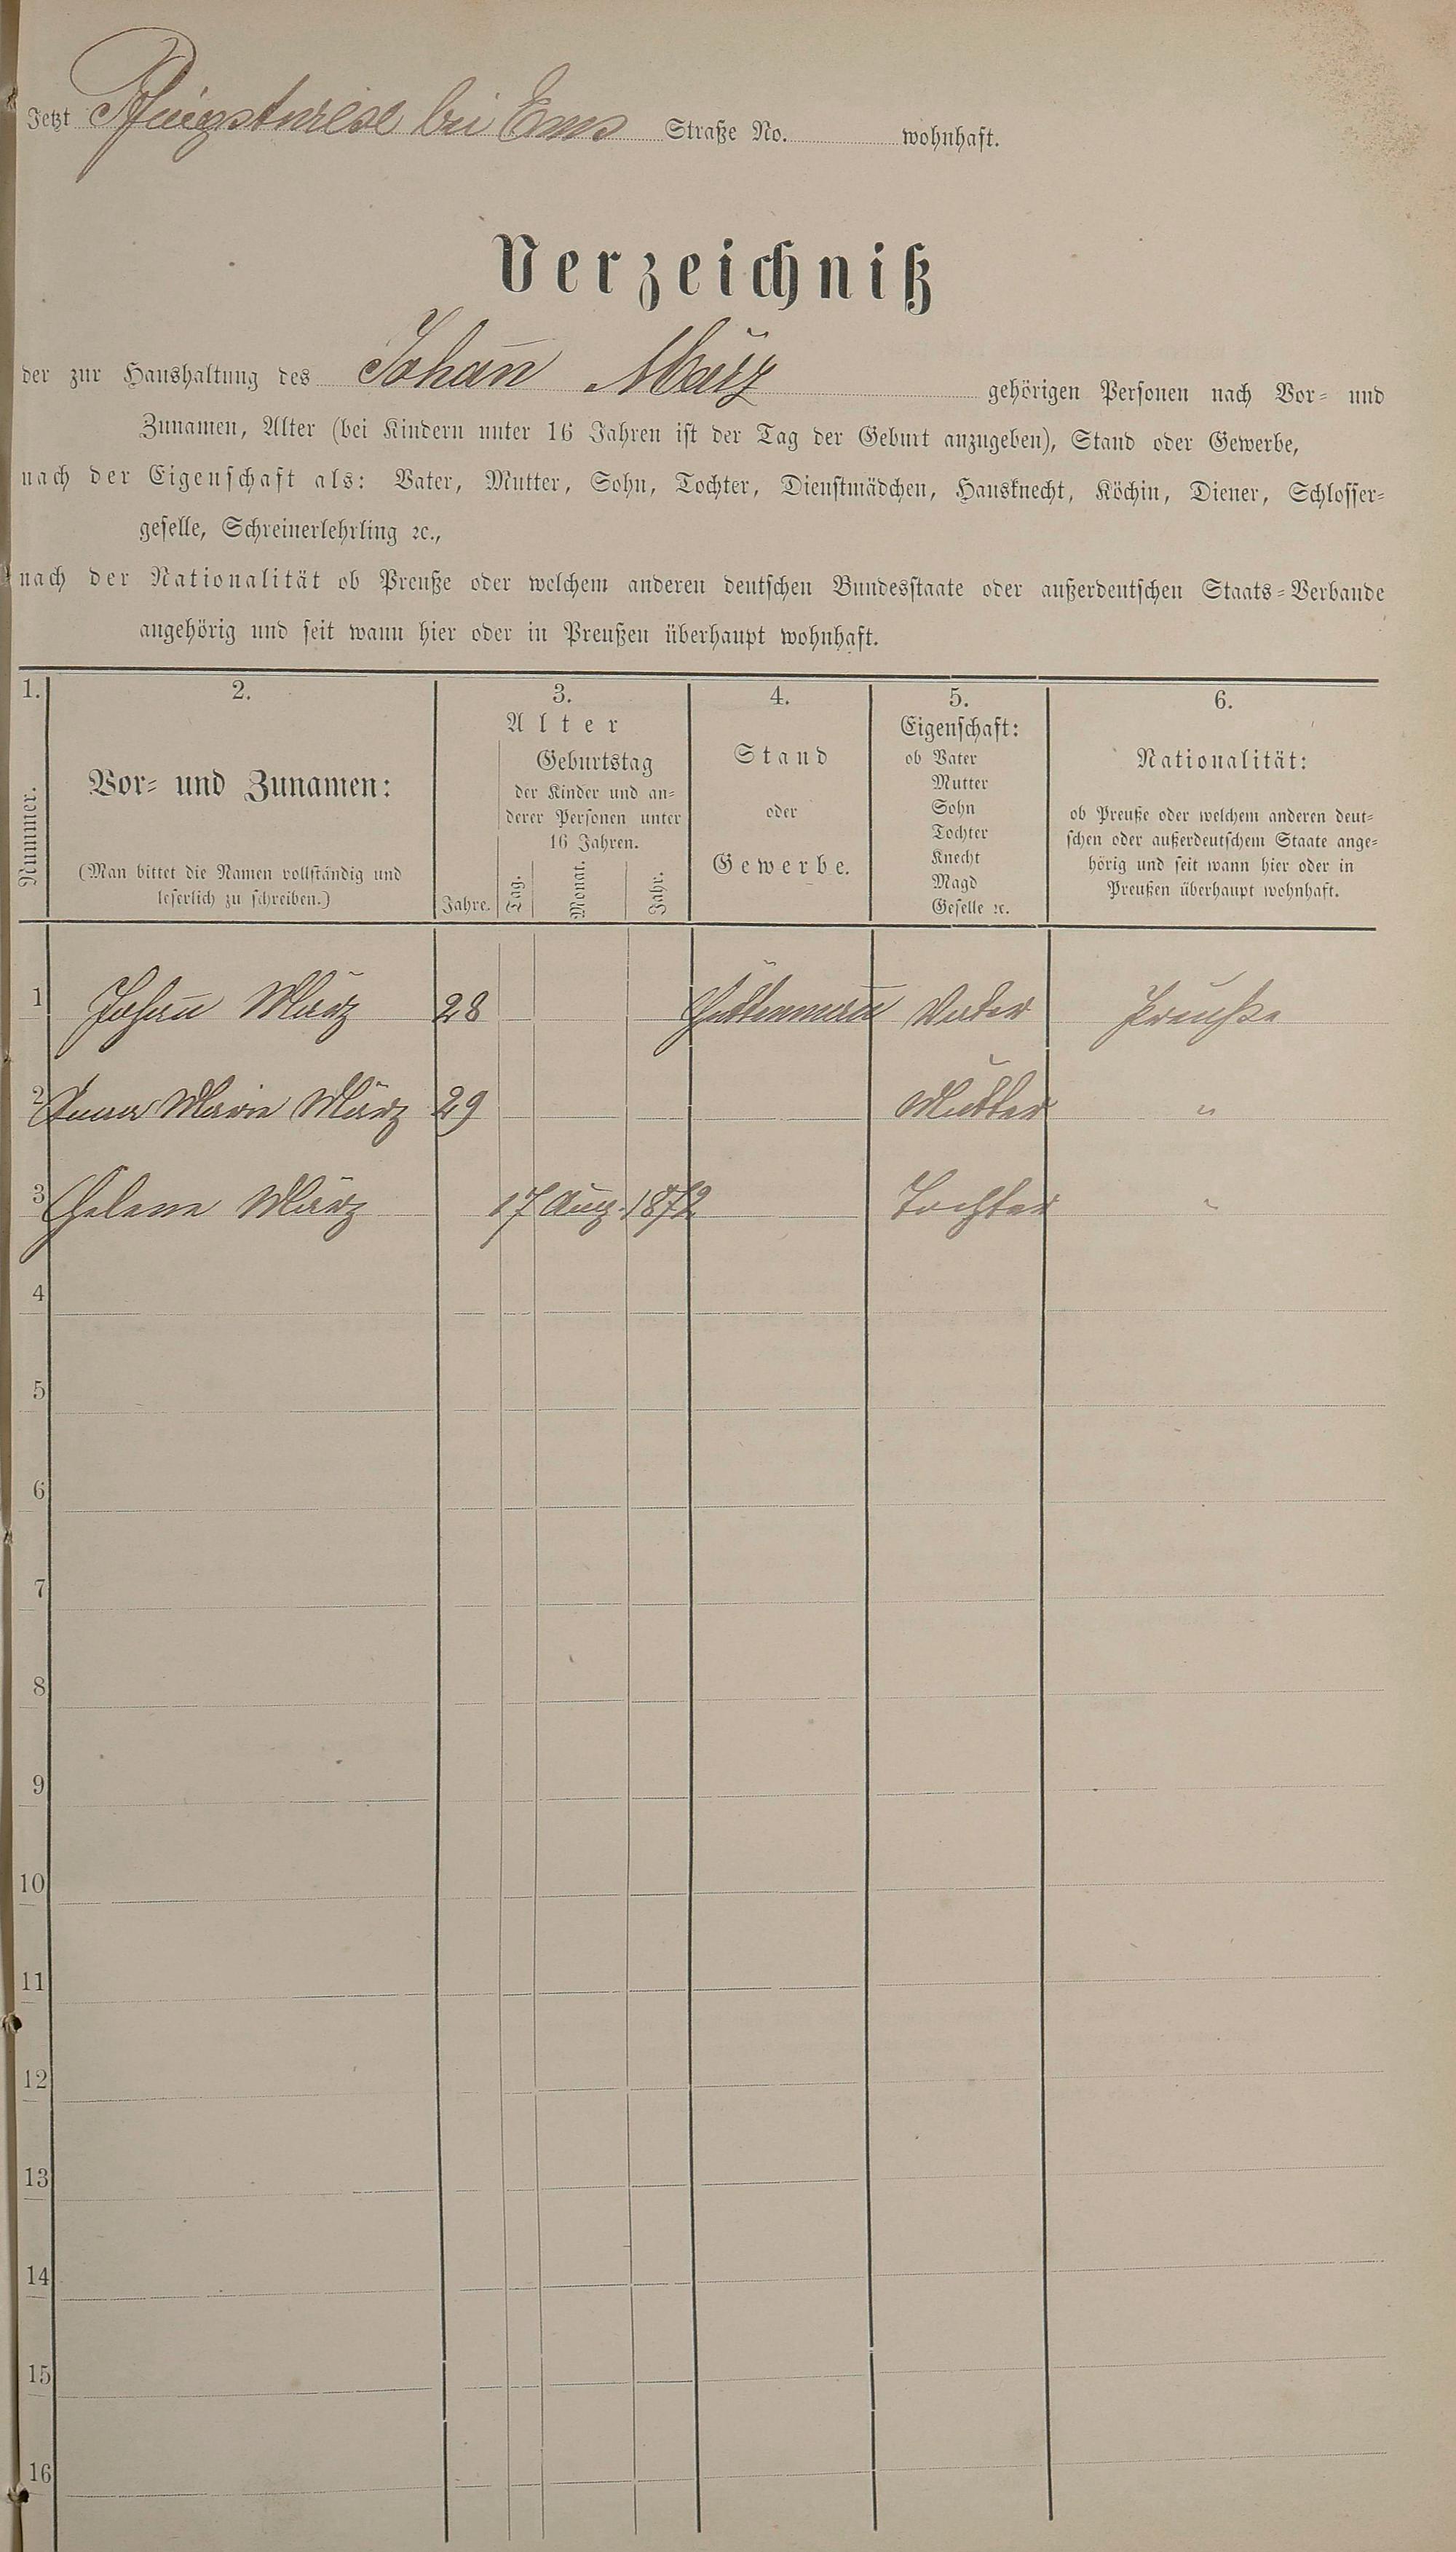 Jetzt Pfingstwiese bei Ems Straße No. wohnhaft.
Verzeichniß
der zur Haushaltung des Johan̄ März gehörigen Personen nach Vor- und
Zunamen, Alter (bei Kindern unter 16 Jahren ist der Tag der Geburt anzugeben), Stand oder Gewerbe,
nach der Eigenschaft als: Vater, Mutter, Sohn, Tochter, Dienstmädchen, Hausknecht, Köchin, Diener, Schlosser-
geselle, Schreinerlehrling ꝛc.,
nach der Nationalität ob Preuße oder welchem anderen deutschen Bundesstaate oder außerdeutschen Staats-Verbande
angehörig und seit wann hier oder in Preußen überhaupt wohnhaft.
1. 2. 3. 4. 5. 6.
Nummer.
Vor- und Zunamen:
(Man bittet die Namen vollständig und
leserlich zu schreiben.)
Alter
Geburtstag
der Kinder und an-
derer Personen unter
16 Jahren.
Jahre. Tag. Monat. Jahr.
Stand
oder
Gewerbe.
Eigenschaft:
ob Vater
Mutter
Sohn
Tochter
Knecht
Magd
Geselle ꝛc.
Nationalität:
ob Preuße oder welchem anderen deut-
schen oder außerdeutschem Staate ange-
hörig und seit wann hier oder in
Preußen überhaupt wohnhaft.
1 Johan̄ März 28 Hüttenman̄ Vater Preuße
2 Anna Marie März 29 Mutter "
3 Helene März 17 Aug. 1872 Tochter "
4
5
6
7
8
9
10
11
12
13
14
15
16